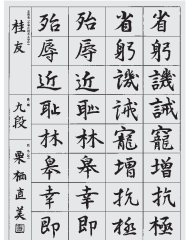 省躬譏誡寵增抗極
省躬譏誡寵增抗極
殆辱近耻林皐幸即
殆辱近耻林皐幸即
桂友
九段
栗栖直美